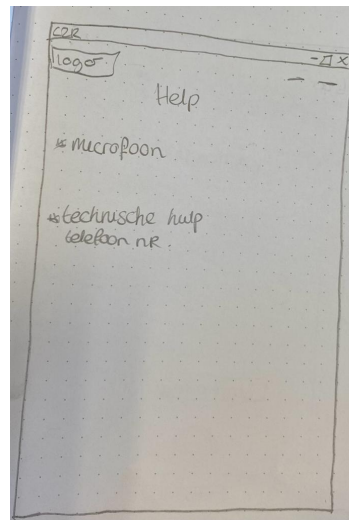 C2R
logo
Help
* microfoon
* technische hulp
telefoon nR.